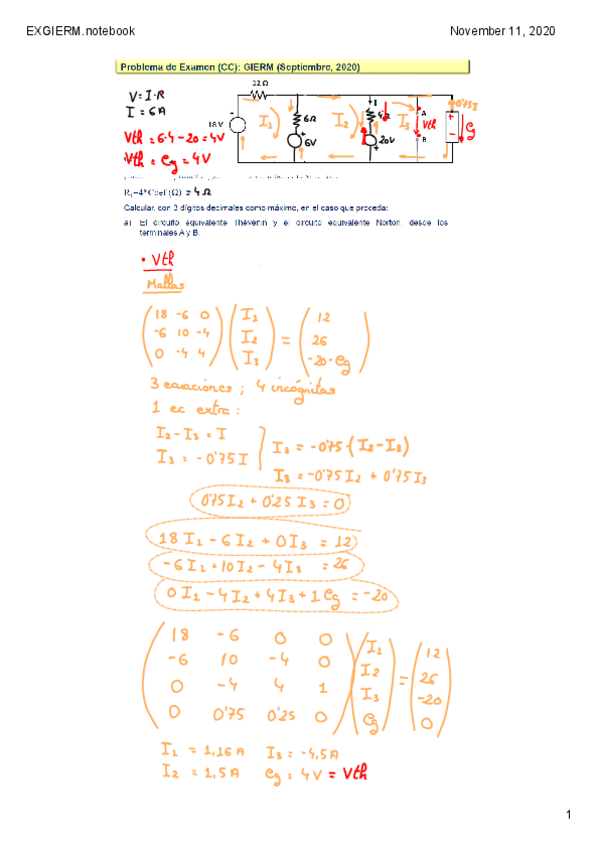 EXGIERM.notebook
November 11, 2020
Problema de Examen (CC): GIERM (Septiembre, 2020)
V = I·R
I = 6A
Vth = 6·4-20 = 4V
Vth = eg = 4V
12 Ω
18 V
I1
6Ω
6V
I2
I
20V
I3
A
Vth
B
0'75I
eg
R1=4ª Coef (Ω) = 4Ω
Calcular, con 3 dígitos decimales como máximo, en el caso que proceda:
a) El circuito equivalente Thévenin y el circuito equivalente Norton, desde los
terminales A y B.
• Vth
Mallas
18 -6 0 I1 12
-6 10 -4 I2 = 26
0 -4 4 I3 -20-eg
3 ecuaciones ; 4 incógnitas
1 ec extra :
I2-I3 = I
I3 = -0'75 I
I3 = -0'75·(I2-I3)
I3 = -0'75 I2 + 0'75 I3
0'75 I2 + 0'25 I3 = 0
18 I1 - 6 I2 + 0 I3 = 12
-6 I1 + 10 I2 - 4 I3 = 26
0 I1 - 4 I2 + 4 I3 + 1 eg = -20
18 -6 0 0 I1 12
-6 10 -4 0 I2 = 26
0 -4 4 1 I3 -20
0 0'75 0'25 0 eg 0
I1 = 1,16 A I3 = -4,5 A
I2 = 1,5 A eg = 4V = Vth
1